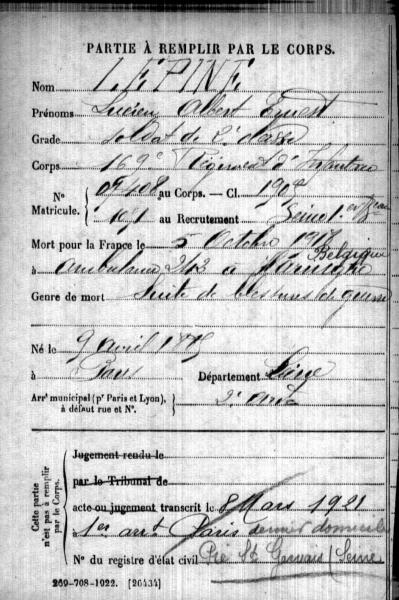 PARTIE À REMPLIR PAR LE CORPS.
Nom LEPINE
Prénoms Lucien Albert Ernest
Grade Soldat de 2e classe
Corps 169e Régiment d'Infanterie
N° Matricule. au Corps. — Cl. 190
au Recrutement Seine 1er Bau
Mort pour la France le 5 Octobre 1917
Belgique
à Ambulance
Genre de mort Suite de blessures de guerre
Né le 9 avril
à Paris Département Seine
Arrt municipal (pr Paris et Lyon), à défaut rue et N°. 2e Arrt
Cette partie n'est pas à remplir par le Corps.
Jugement rendu le
par le Tribunal de
acte ou jugement transcrit le 8 Mars 1921
1er arrt Paris dernier domicile
N° du registre d'état civil Pré St Gervais (Seine
269-708-1922. [26434]